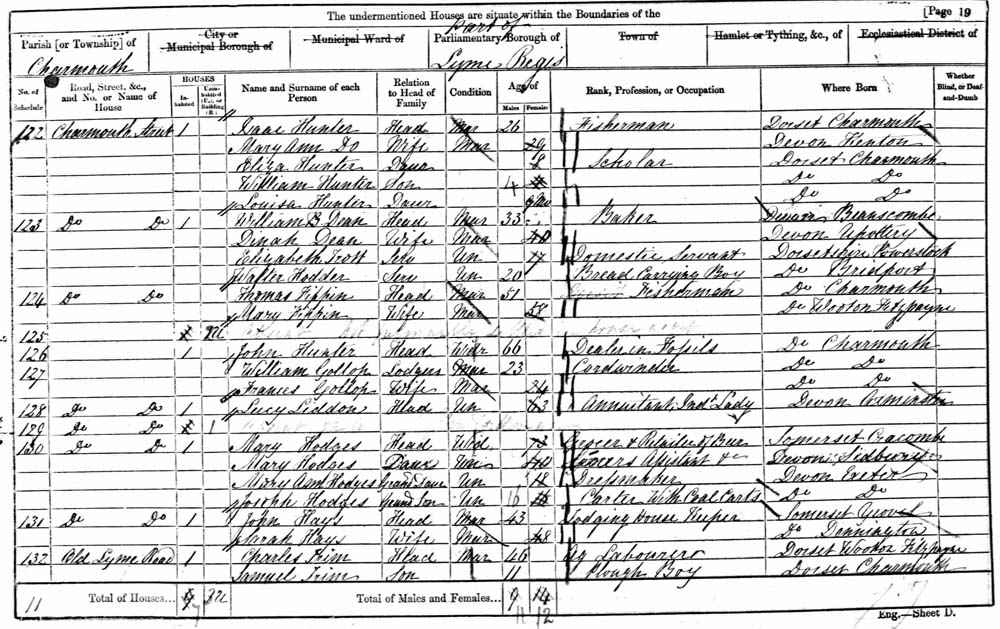 The undermentioned Houses are situate within the Boundaries of the
[Page 19
Parish [or Township] of
Charmouth
City or Municipal Borough of
Municipal Ward of
part of
Parliamentary Borough of
Lyme Regis
Town of
Hamlet or Tything, &c., of
Ecclesiastical District of
No. of Schedule
Road, Street, &c., and No. or Name of House
HOUSES
Inhabited
Uninhabited (U.), or Building (B.)
Name and Surname of each Person
Relation to Head of Family
Condition
Age of
Males
Females
Rank, Profession, or Occupation
Where Born
Whether Blind, or Deaf-and-Dumb
122 Charmouth Street 1 Isaac Hunter Head Mar 26 Fisherman Dorset Charmouth
Mary Ann Do Wife Mar 29 Devon Kenton
Eliza Hunter Daur 8 Scholar Dorset Charmouth
William Hunter Son 4 Do Do
Louisa Hunter Daur Do Do
123 Do Do 1 William B Dean Head Mar 33 Baker Devon
Dinah Dean Wife Mar 40 Devon Upottery
Elizabeth Trott Serv Un 17 Domestic Servant Dorsetshire Powerstock
Walter Hodder Serv Un 20 Bread Carrying Boy Do Bridport
124 Do Do Thomas Tippin Head Mar 51 Fisherman Do Charmouth
Mary Tippin Wife Mar 58 Do Wooton Fitzpayne
125
126 1 John Hunter Head Widr 66 Dealer in Fossils Do Charmouth
127 William Gollop Lodger Mar 23 Cordwinder Do Do
Frances Gollop Wife Mar 24 Do Do
128 Do Do 1 Lucy Liddon Head Un 63 Annuitant Indt Lady Devon Axminster
129 Do Do 1
130 Do Do 1 Mary Hodges Head Wid 73 Grocer & Retailer of Beer Somerset
Mary Hodges Daur Un 40 Grocers Assistant &c Devon Sidbury
Mary Ann Hodges Grand Daur Un Dressmaker Devon Exeter
Joseph Hodges Grand Son Un 16 Carter With Coal Carts Do Do
131 Do Do 1 John Hays Head Mar 43 Lodging House Keeper Somerset
Sarah Hays Wife Mar 48 Do Dennington
132 Old Lyme Road 1 Charles Trim Head Mar 46 Ag Labourer Dorset Wooton Fitzpayne
Samuel Trim Son 11 Plough Boy Dorset Charmouth
11
Total of Houses...
Total of Males and Females...
9 14
11 12
Eng.—Sheet D.